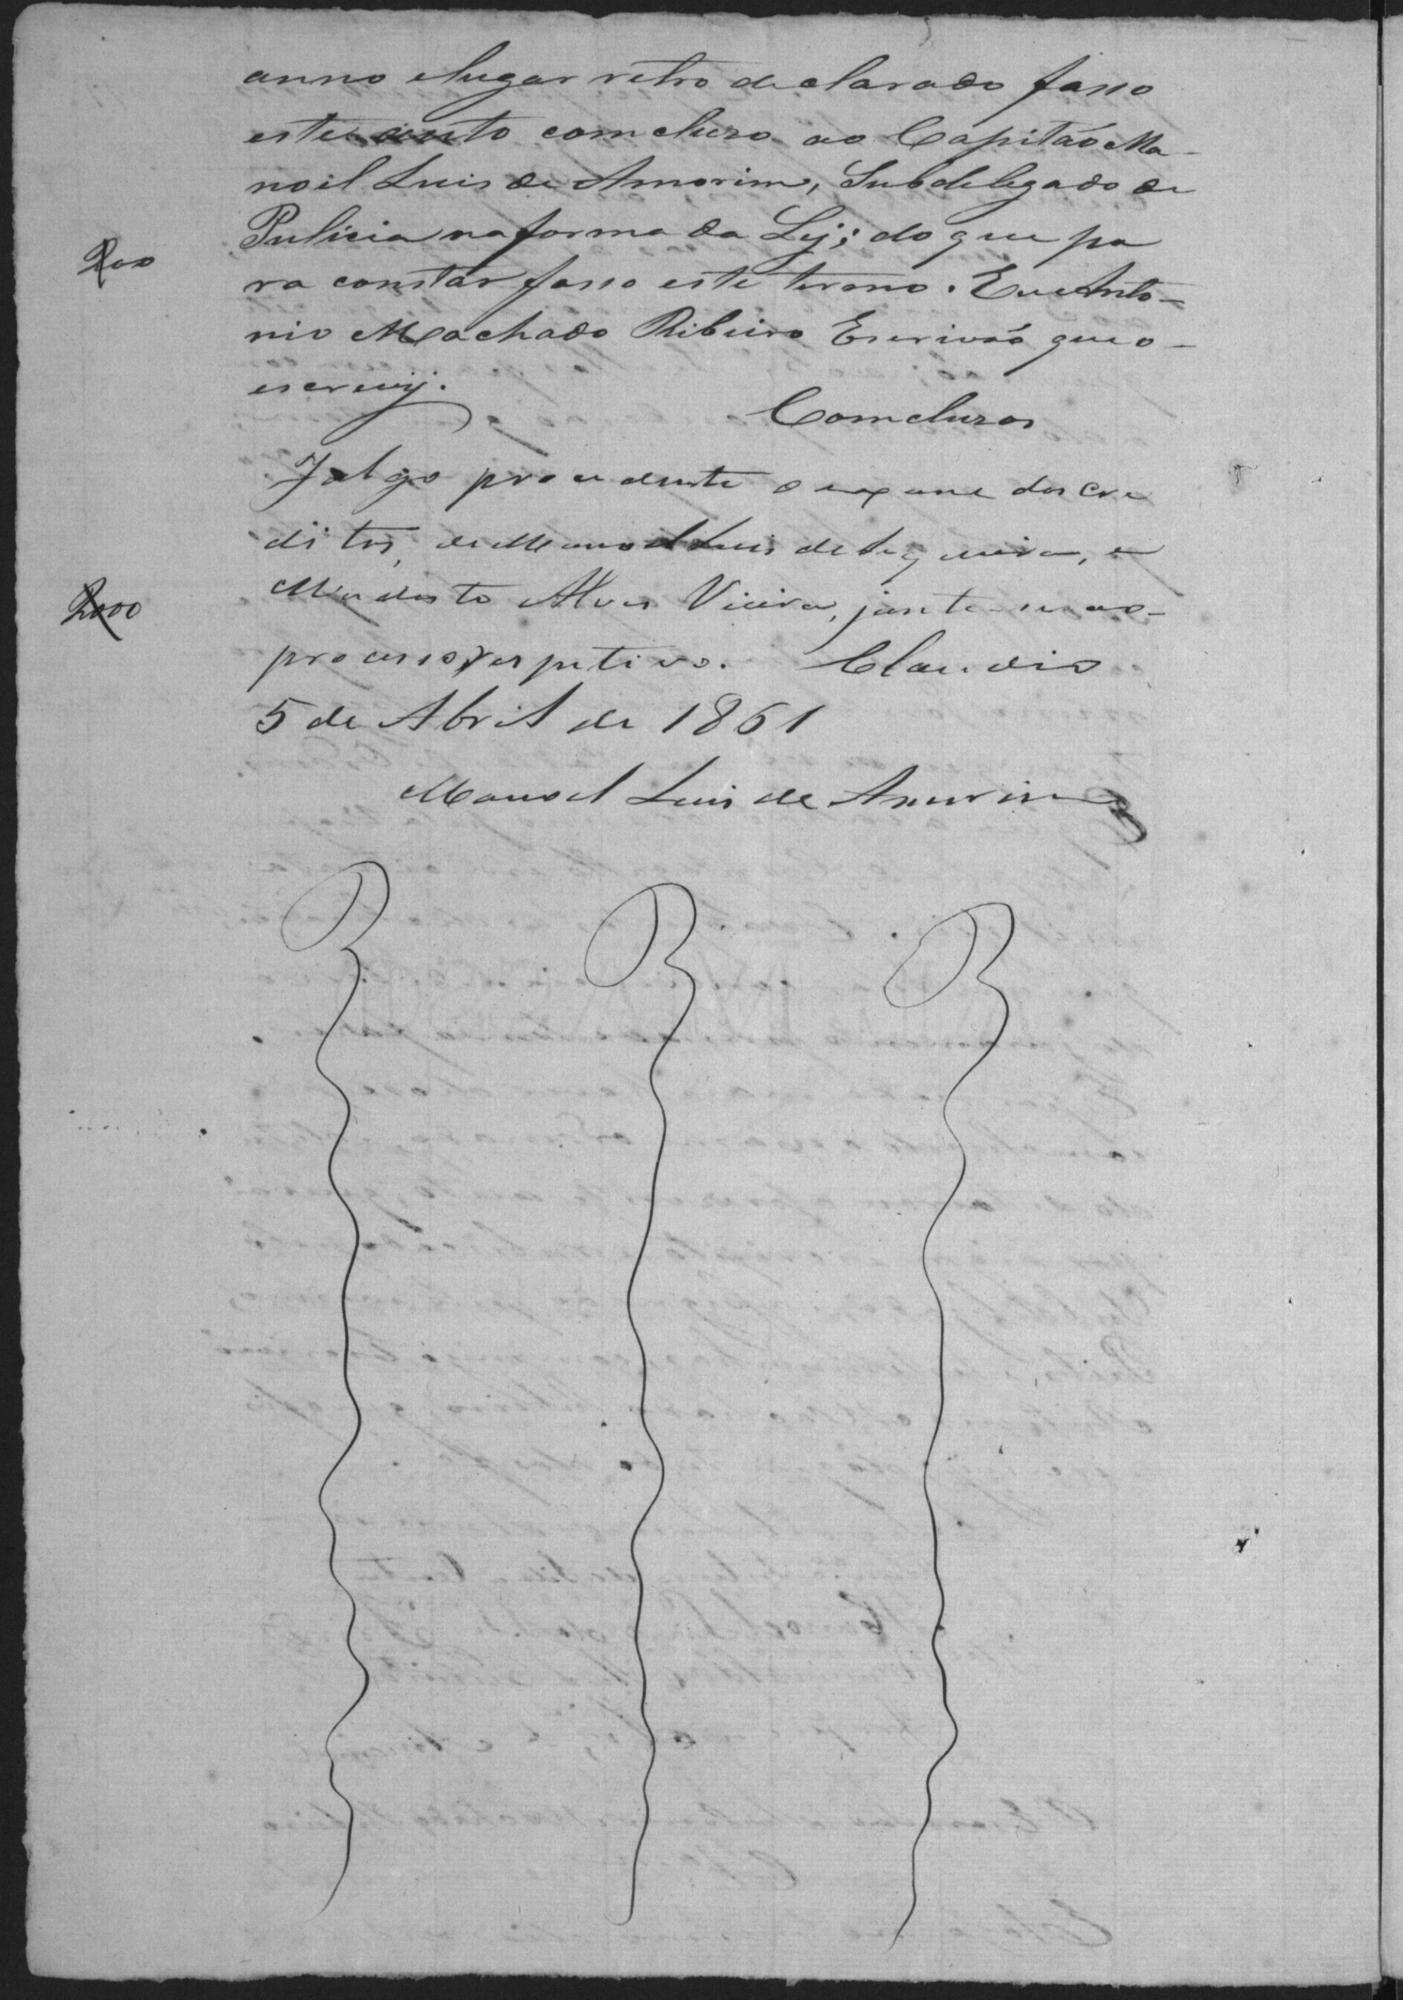 anno elugar retro declarado fasso
este auto comcluzo ao Capitão Ma-
noel Luis de Amorim, Subdelegado de
Pulicia na forma da Ley; do que pa
200
ra constar fasso este termo. Eu Anto-
nio Machado Ribeiro Escrivão que o-
escrevij.
Comcluzos
Julgo procedente o exame dos cre
ditos, de Manoel Luis de Siqueira, e
2000
Modesto Alves Vieira, junte-se ao-
processo respetivo. Claudio
5 de Abril de 1861
Manoel Luis de Amorim